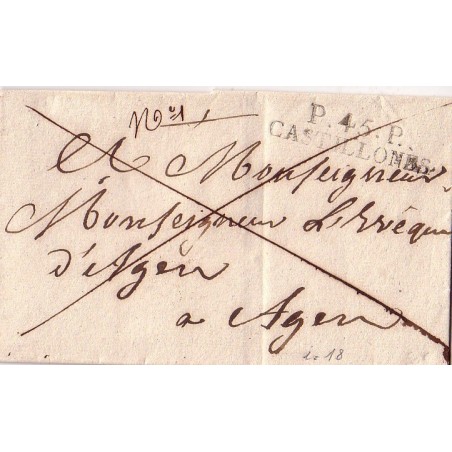 N°1
P.45.P.
CASTILLONES
A Monseigneur
Monseigneur L'Evêque
d'Agen
a Agen
18